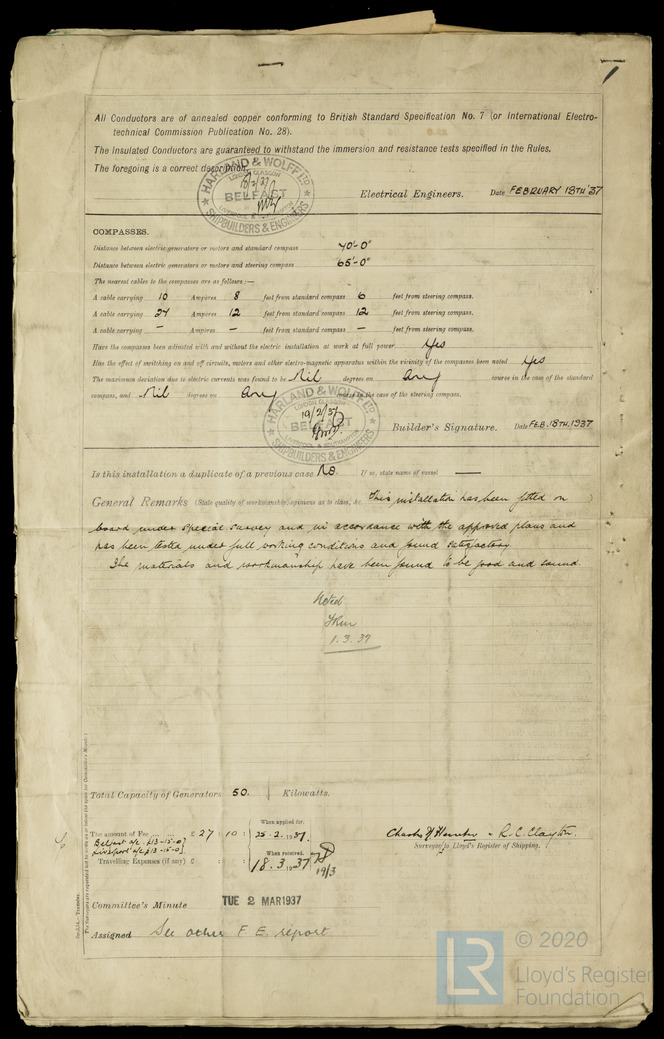 All Conductors are of annealed copper conforming to British Standard Specification No. 7 (or International Electro-
technical Commission Publication No. 28).
The Insulated Conductors are guaranteed to withstand the immersion and resistance tests specified in the Rules.
The foregoing is a correct description.
HARLAND & WOLFF LTD
LONDON GLASGOW
18/2/37
BELFAST
SHIPBUILDERS & ENGINEERS
Electrical Engineers. Date FEBRUARY 18TH '37
COMPASSES.
Distance between electric generators or motors and standard compass 70'-0"
Distance between electric generators or motors and steering compass 65'-0"
The nearest cables to the compasses are as follows:—
A cable carrying 10 Ampères 8 feet from standard compass 6 feet from steering compass.
A cable carrying 24 Ampères 12 feet from standard compass 12 feet from steering compass.
A cable carrying – Ampères – feet from standard compass – feet from steering compass.
Have the compasses been adjusted with and without the electric installation at work at full power Yes
Has the effect of switching on and off circuits, motors and other electro-magnetic apparatus within the vicinity of the compasses been noted Yes
The maximum deviation due to electric currents was found to be Nil degrees on Any course in the case of the standard
compass, and Nil degrees on Any course in the case of the steering compass.
HARLAND & WOLFF LTD
LONDON GLASGOW
19/2/37
BELFAST
LIVERPOOL & SOUTHAMPTON
SHIPBUILDERS & ENGINEERS
Builder's Signature. Date FEB. 18TH. 1937
Is this installation a duplicate of a previous case No. If so, state name of vessel —
General Remarks (State quality of workmanship, opinions as to class, &c. This installation has been fitted on
board under special survey and in accordance with the approved plans and
has been tested under full working conditions and found satisfactory.
The materials and workmanship have been found to be good and sound.
Noted
1.3.37
Total Capacity of Generators 50. Kilowatts.
The amount of Fee ... ... £ 27 : 10 :
When applied for,
25.2.1937.
Belfast a/c £13-15-0
Liverpool a/c £13-15-0
Travelling Expenses (if any) £ : :
When received,
18.3.1937
19/3
R. C. Clayton.
Surveyor to Lloyd's Register of Shipping.
Committee's Minute TUE 2 MAR 1937
Assigned See other F. E. report
LR
© 2020
Lloyd's Register
Foundation